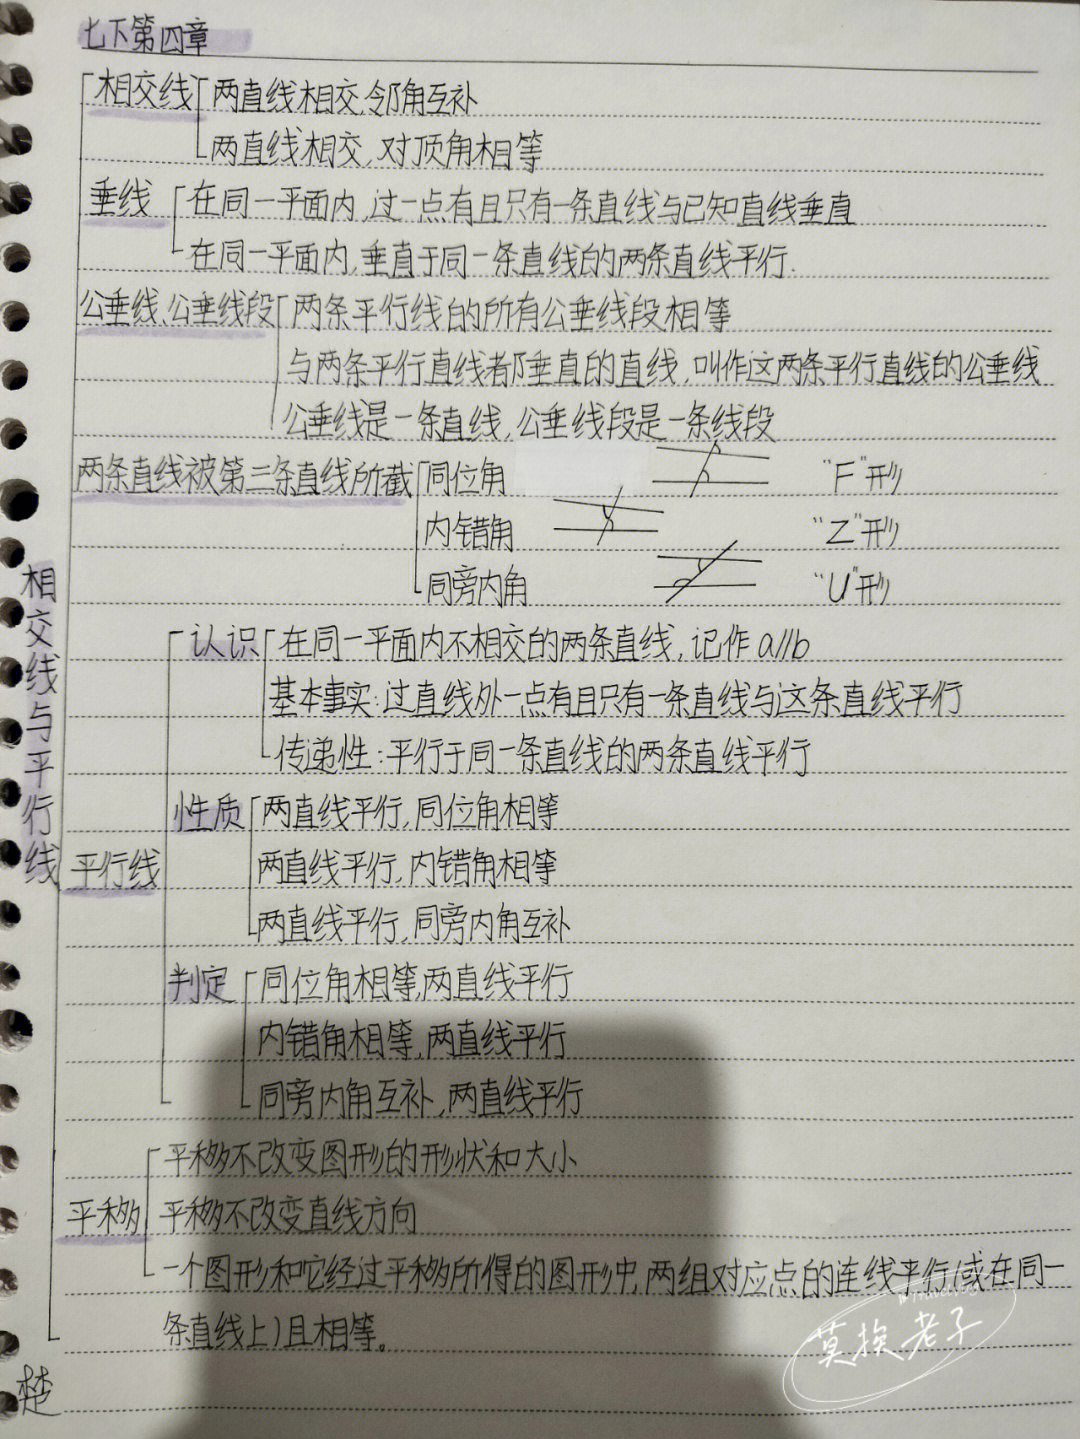 七下第四章
相交线 两直线相交,邻角互补
两直线相交,对顶角相等
垂线 在同一平面内,过一点有且只有一条直线与已知直线垂直
在同一平面内,垂直于同一条直线的两条直线平行.
公垂线、公垂线段 两条平行线的所有公垂线段相等
与两条平行直线都垂直的直线,叫作这两条平行直线的公垂线
公垂线是一条直线,公垂线段是一条线段
两条直线被第三条直线所截 同位角 "F"形
内错角 "Z"形
同旁内角 "U"形
相交线与平行线
认识 在同一平面内不相交的两条直线,记作a//b
基本事实:过直线外一点有且只有一条直线与这条直线平行
传递性:平行于同一条直线的两条直线平行
性质 两直线平行,同位角相等
平行线 两直线平行,内错角相等
两直线平行,同旁内角互补
判定 同位角相等,两直线平行
内错角相等,两直线平行
同旁内角互补,两直线平行
平移不改变图形的形状和大小
平移 平移不改变直线方向
一个图形和它经过平移所得的图形中,两组对应点的连线平行(或在同一
条直线上)且相等。
莫挨老子
楚